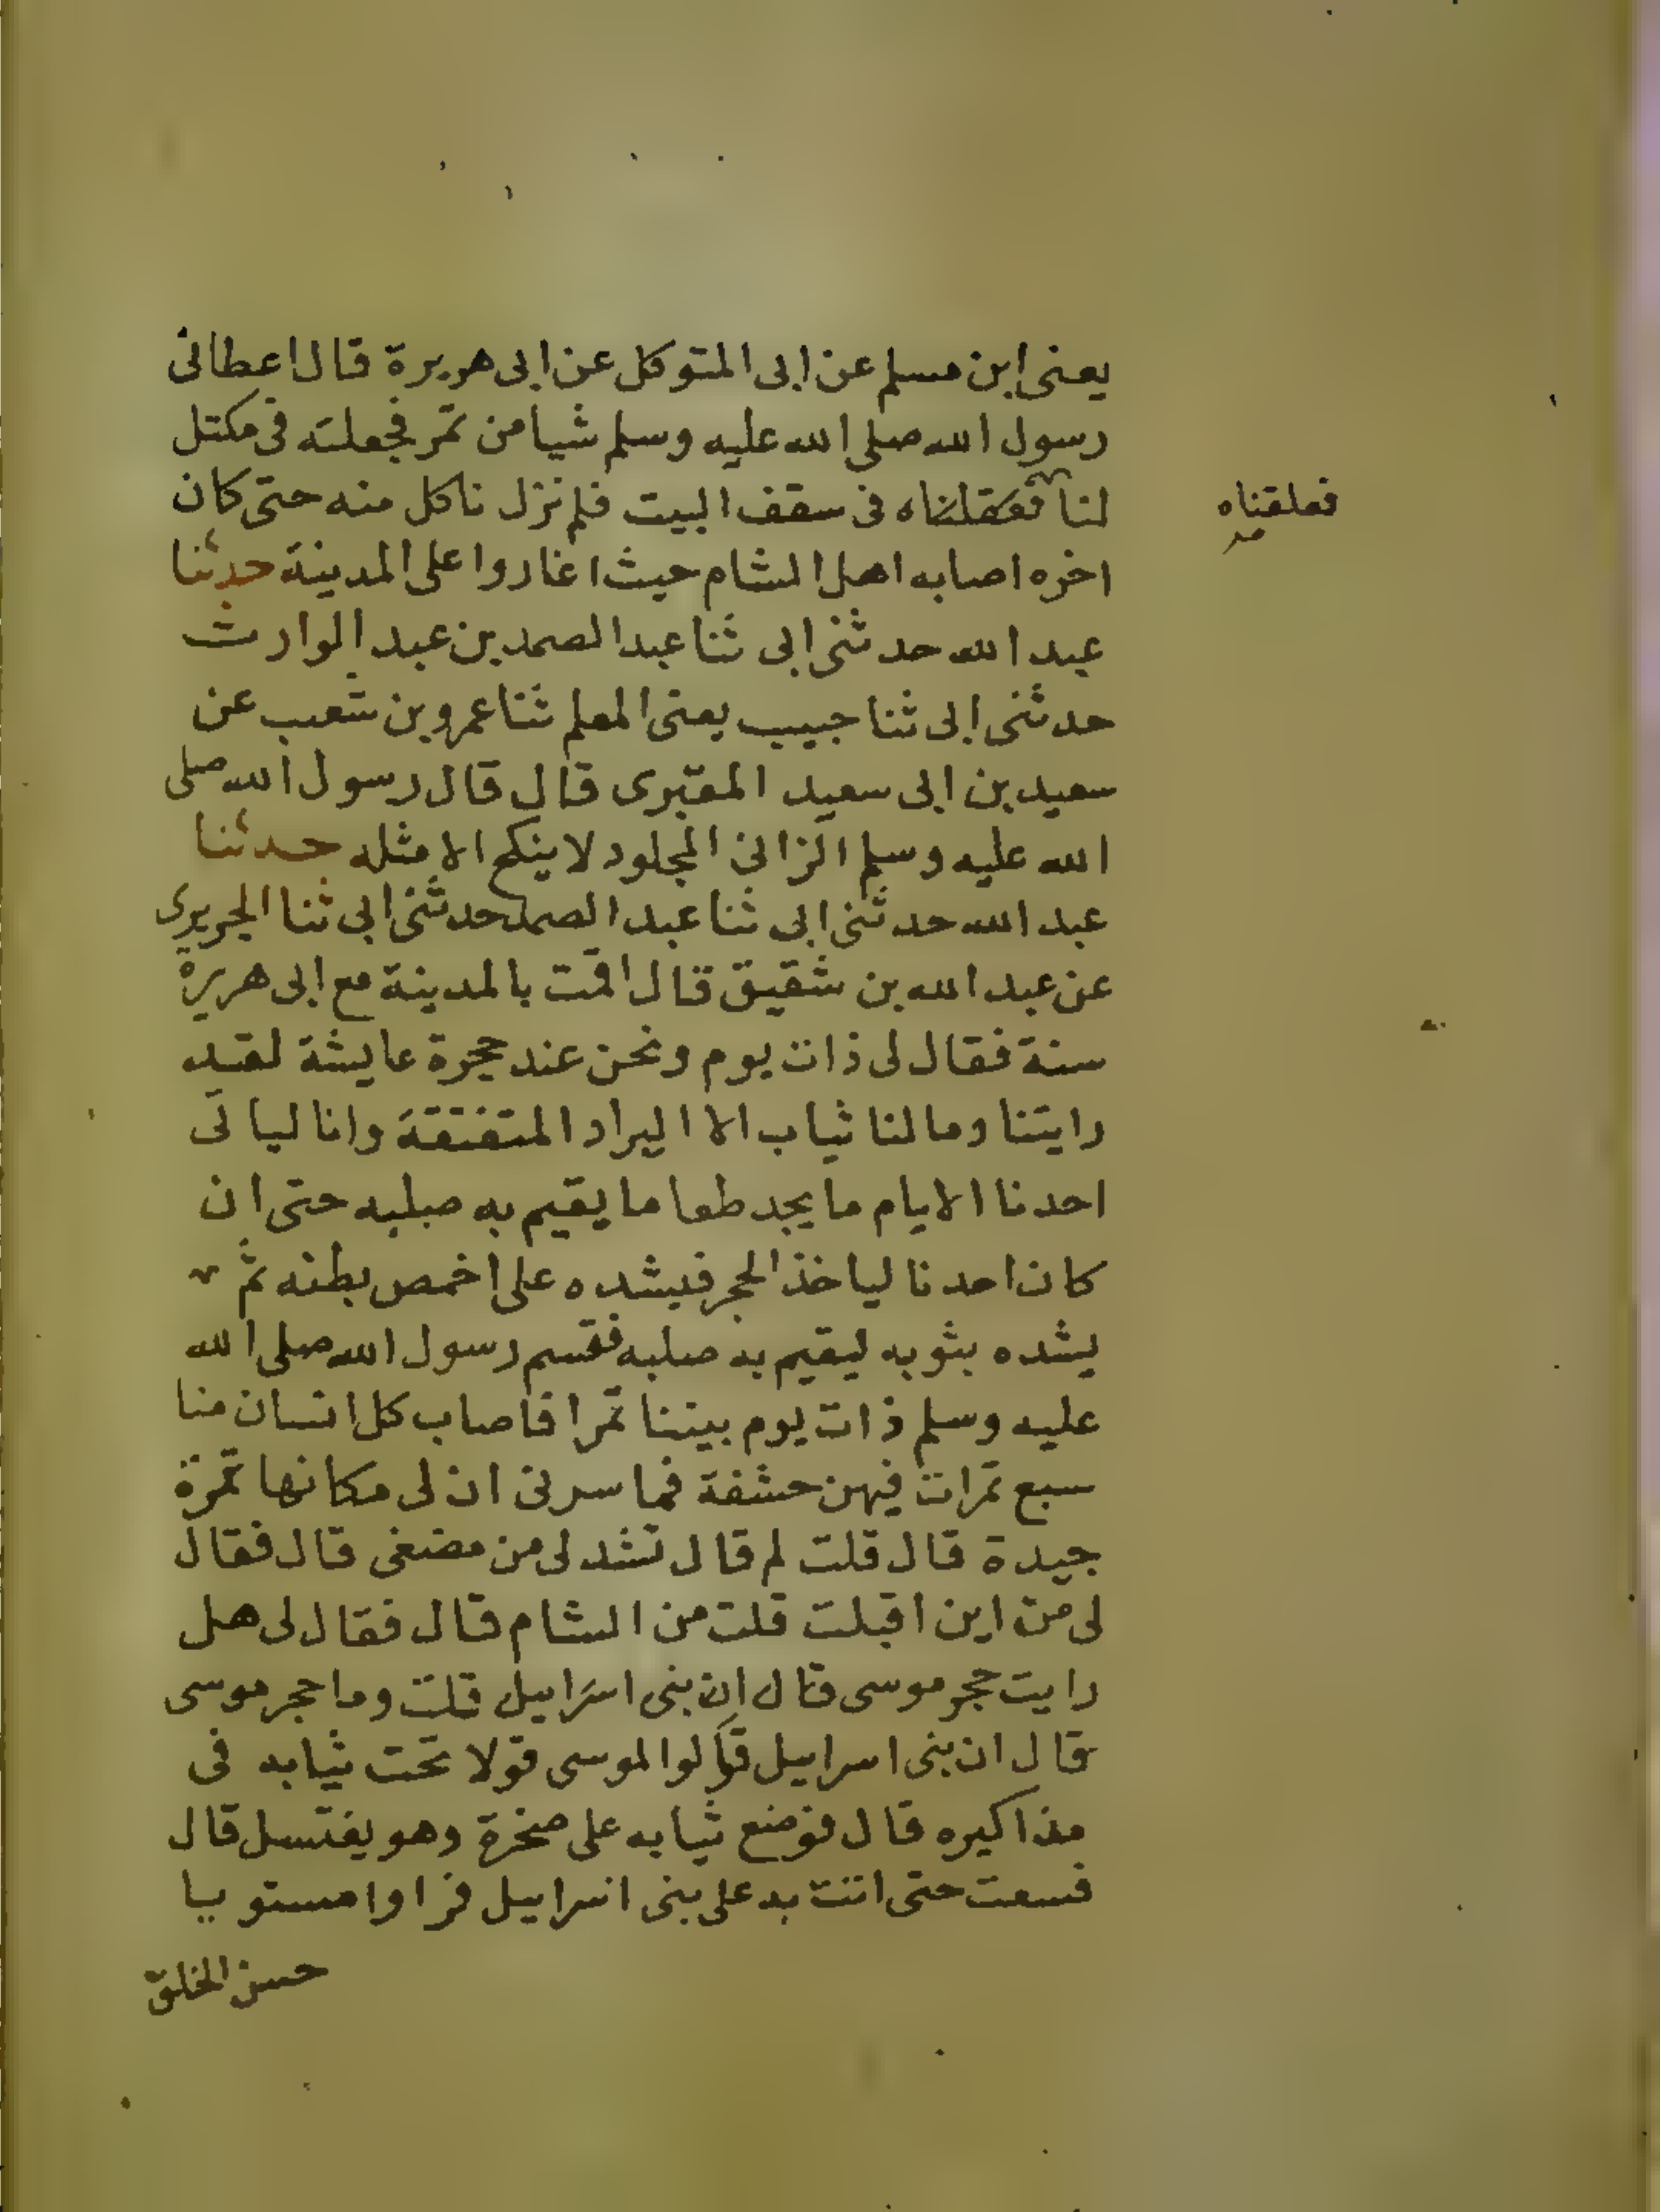 يعنى ابن مسلم عن ابى المتوكل عن ابى هريرة قال اعطانى
رسول الله صلى الله عليه وسلم شيا من تمر فجعلته فى مكتل
لنا فعقلناه فى سقف البيت فلم نزل ناكل منه حتى كان
فعلقناه
اخره اصابه اهل الشام حيث اغاروا على المدينة حدثنا
عبد الله حدثنى ابى ثنا عبد الصمد بن عبد الوارث
حدثنى ابى ثنا حبيب يعنى المعلم ثنا عمرو بن شعيب عن
سعيد بن ابى سعيد المقبرى قال قال رسول الله صلى
الله عليه وسلم الزانى المجلود لا ينكح الا مثله حدثنا
عبد الله حدثنى ابى ثنا عبد الصمد حدثنى ابى ثنا الجريرى
عن عبد الله بن شقيق قال اقمت بالمدينة مع ابى هريرة
سنة فقال لى ذات يوم ونحن عند حجرة عايشة لقد
رايتنا وما لنا ثياب الا البراد المتفتقة وانا لياتى
احدنا الايام ما يجد طعاما يقيم به صلبه حتى ان
كان احدنا لياخذ الحجر فيشده على اخمص بطنه ثم
يشده بثوبه ليقيم به صلبه فقسم رسول الله صلى الله
عليه وسلم ذات يوم بيننا تمرا فاصاب كل انسان منا
سبع تمرات فيهن حشفة فما سرنى ان لى مكانها تمرة
جيدة قال قلت لم قال تشد لى من مضغى قال فقال
لى من اين اقبلت قلت من الشام قال فقال لى هل
رايت حجر موسى قال ان بنى اسرايل قلت وما حجر موسى
قال ان بنى اسرايل قالوا لموسى قولا تحت ثيابه فى
مذاكيره قال فوضع ثيابه على صخرة وهو يغتسل قال
فسعت حتى اتت به على بنى اسرايل فراوا مستويا
حسن الخلق